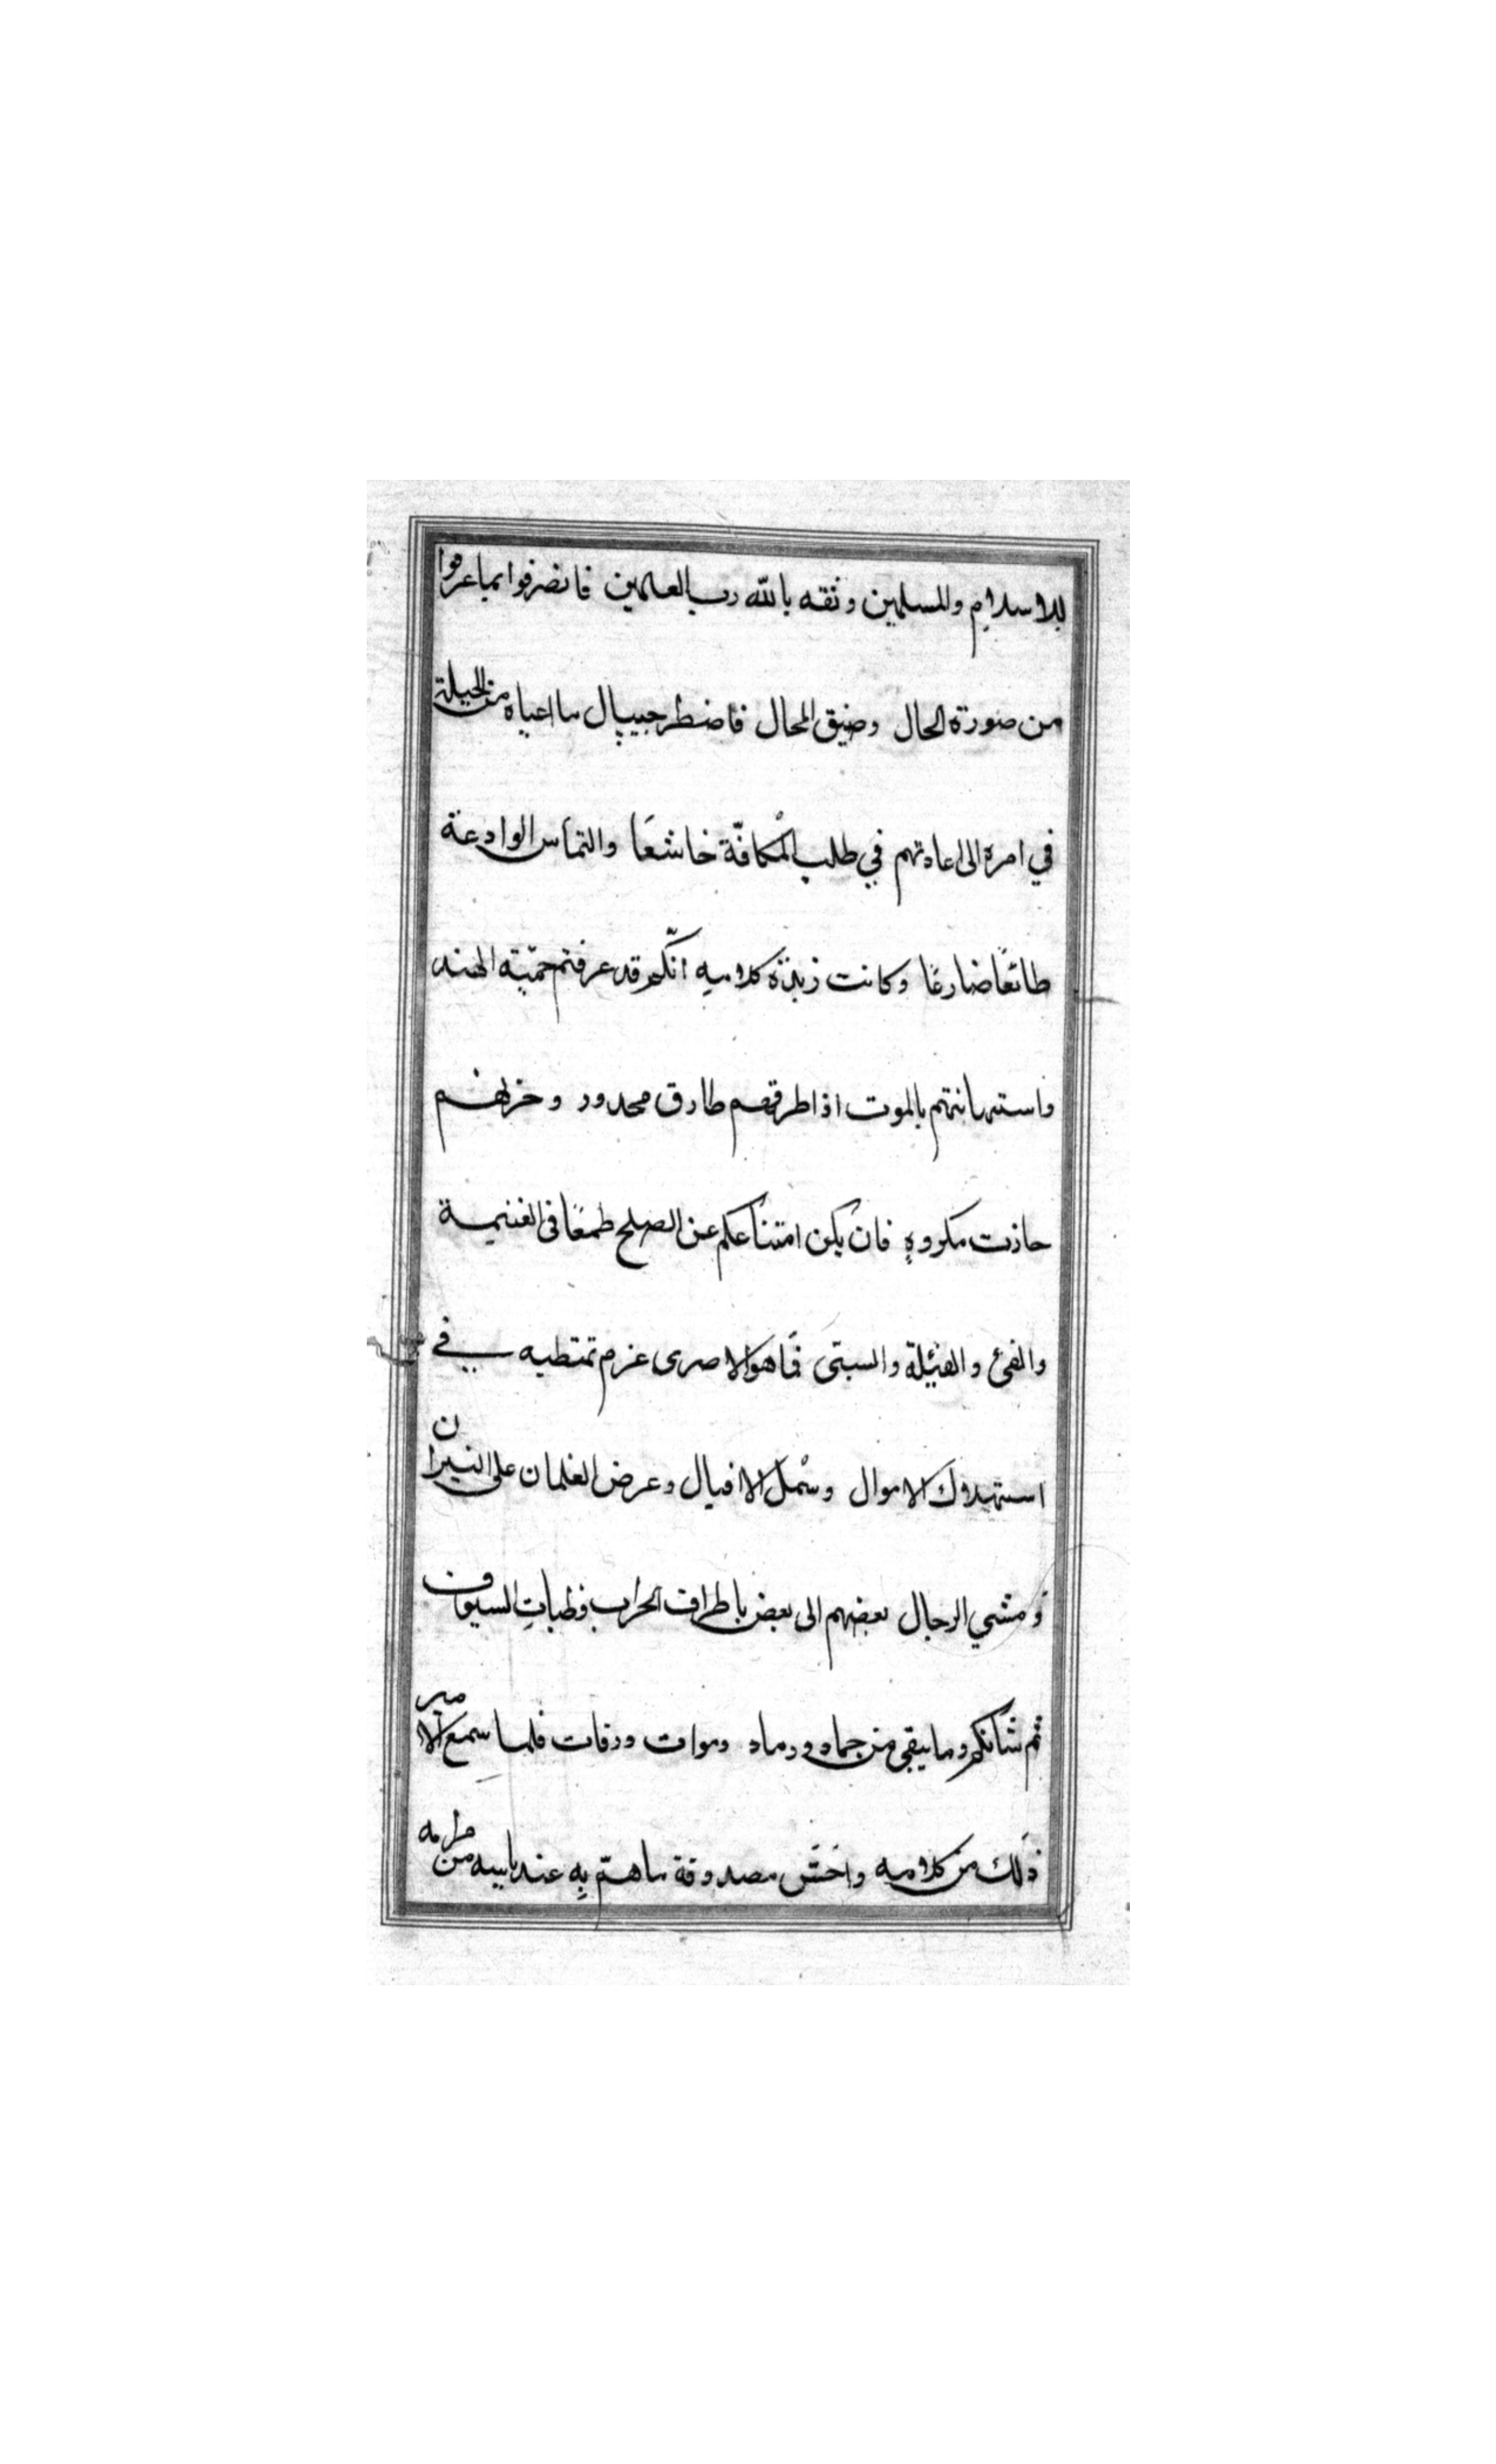 للاسلام والمسلمين وثقه بالله رب العلمين فانصرفوا بما عرفوا
من صورة الحال وضيق المحال فاضطر جيپال لما اعياه من الحيلة
في امره الى اعادتهم في طلب المكافّة خاشعًا والتماس الوادعة
طائعًا ضارعًا وكانت زبدة كلامه انّكم قد عرفتم حميّة الهند
واستهانتهم بالموت اذا طرقهم طارق محدور وحزبهم
حازت مكروهٍ فان يكن امتناعكم عن الصلح طمعًا فى الغنيمة
والفئ والفيئلة والسبى فما هو الا صرى عزم تمتطيه في
استهلاك الاموال وسمل الافيال وعرض الغلمان على النيران
ومشي الرجال بعضهم الى بعض باطراف الحراب وظبات السيوف
ثم شانكم وما يبقى من جماد ورماد وموات ورفات فلما سمع الامير
ذلك من كلامه واحسّ مصدوقة ما همّ بِه عند ياسه من مرامه